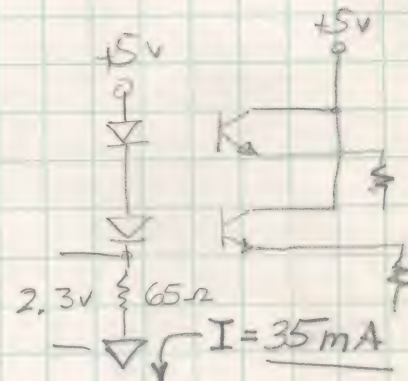 +5v
+5v
2.3v 65Ω
I = 35mA